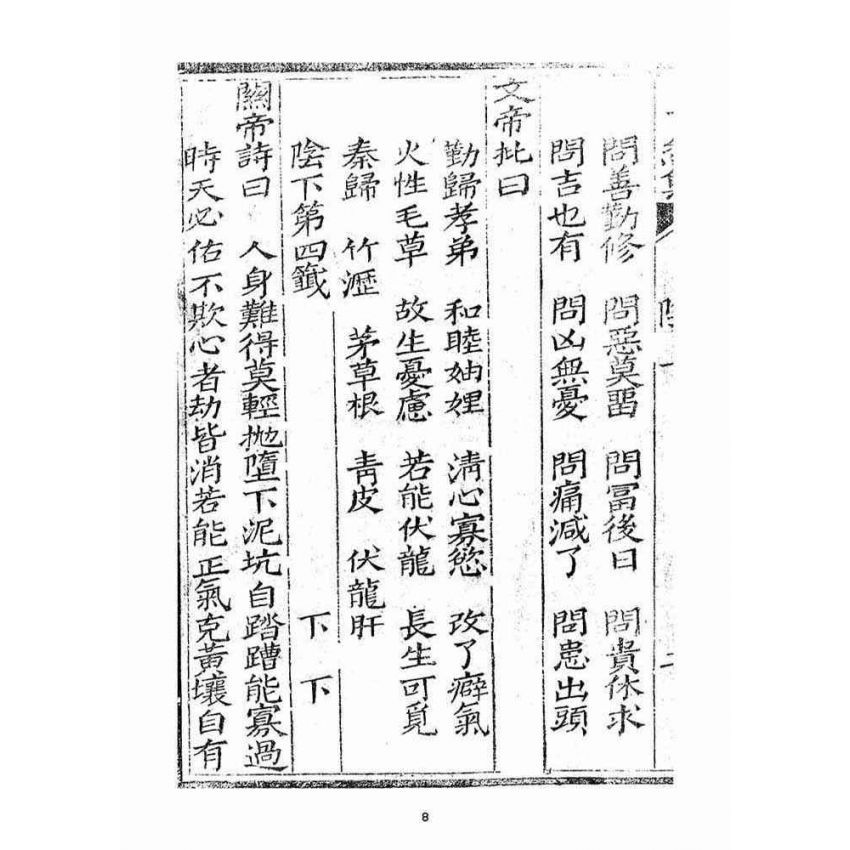 問善勤修 問惡莫畱 問冨後日 問貴休求
問吉也有 問凶無憂 問痛減了 問患出頭
文帝批曰
勤歸孝弟 和睦妯娌 淸心寡慾 改了癖氣
火性毛草 故生憂慮 若能伏龍 長生可覓
秦歸 竹瀝 茅草根 靑皮 伏龍肝
陰下第四籤 下 下
關帝詩曰 人身難得莫輕拋墮下泥坑自踏蹧能寡過
時天必佑不欺心者劫皆消若能正氣克黃壤自有
8